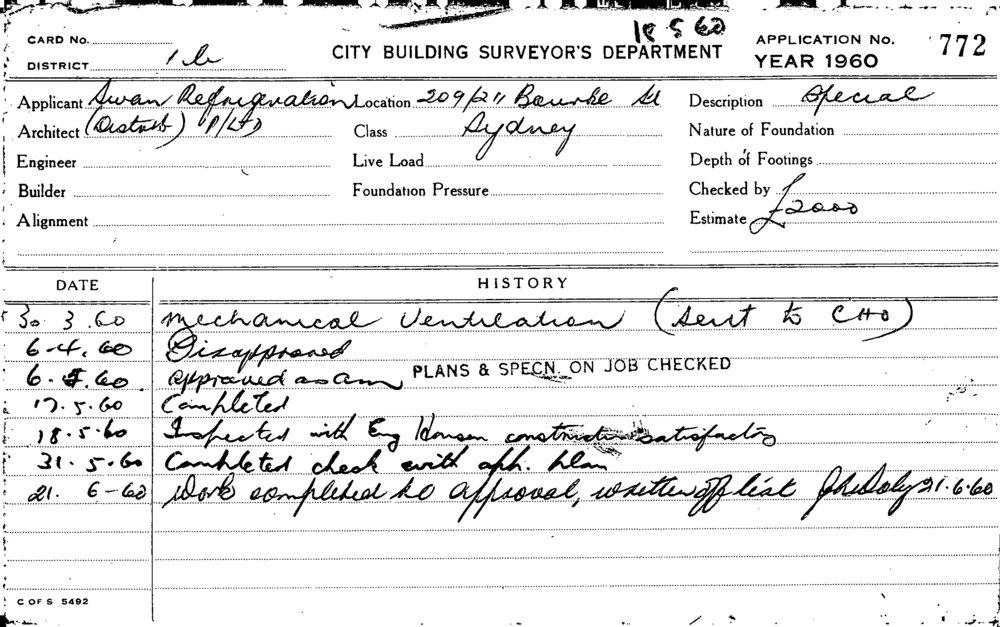 18 5 60
CARD No.
CITY BUILDING SURVEYOR'S DEPARTMENT
APPLICATION No. 772
DISTRICT
YEAR 1960
Applicant Swan Refrigeration Location 209/211 Bourke St Description Special
Architect (Distrib) P/LTD Class Sydney Nature of Foundation
Engineer Live Load Depth of Footings
Builder Foundation Pressure Checked by
Alignment Estimate £2000
DATE HISTORY
30 3.60 Mechanical Ventilation (Sent to CHO)
6-4.60 Disapproved
6.5.60 approved as am PLANS & SPECN. ON JOB CHECKED
17.5.60 Completed
18.5.60 Inspected with Eng construction satisfactory
31.5.60 Completed check with aph. plan
21. 6-60 Work completed to approval, written off list 21.6.60
C OF S 5492